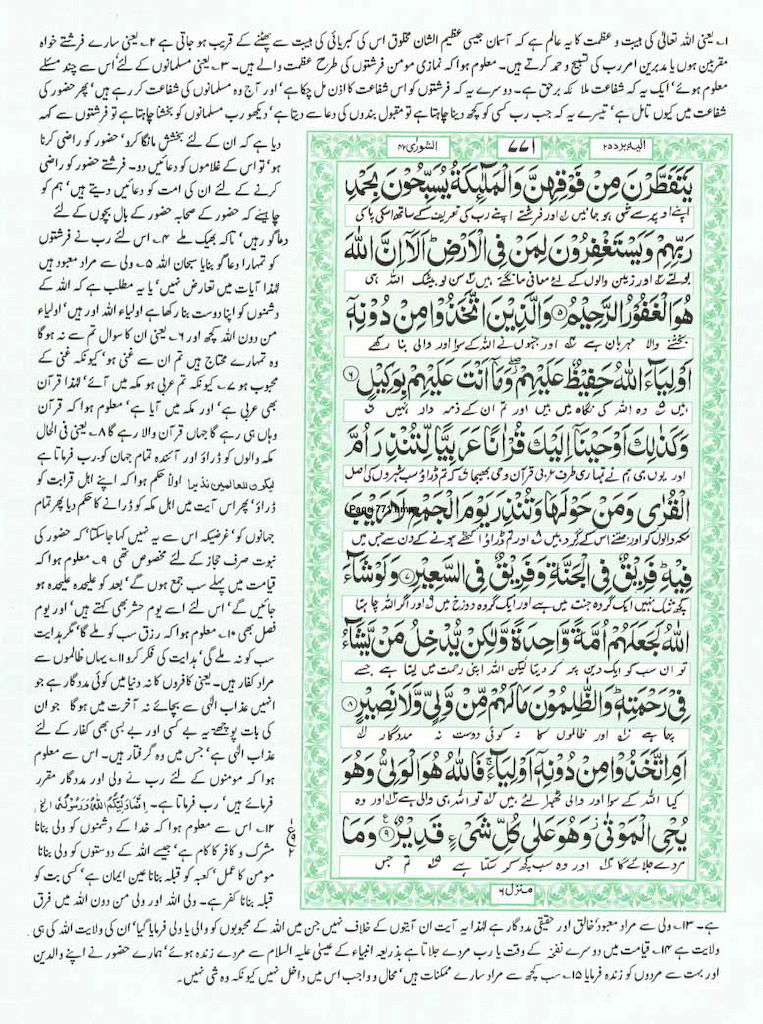 ۱۔ یعنی اللہ تعالیٰ کی ہیبت و عظمت کا یہ عالم ہے کہ آسمان جیسی عظیم الشان مخلوق اس کی کبریائی کی ہیبت سے پھٹنے کے قریب ہو جاتی ہے ۲۔ یعنی سارے فرشتے خواہ
مقربین ہوں یا مدبرین امر رب کی تسبیح و حمد کرتے ہیں۔ معلوم ہوا کہ نمازی مومن فرشتوں کی طرح عظمت والے ہیں۔ ۳۔ یعنی مسلمانوں کے لئے' اس سے چند مسئلے
معلوم ہوئے' ایک یہ کہ شفاعت ملائکہ برحق ہے۔ دوسرے یہ کہ فرشتوں کو اس شفاعت کا اذن مل چکا ہے' اور آج وہ مسلمانوں کی شفاعت کر رہے ہیں' پھر حضور کی
شفاعت میں کیوں تامل ہے' تیسرے یہ کہ جب رب کسی کو کچھ دینا چاہتا ہے تو مقبول بندوں کی دعا سے دیتا ہے' دیکھو رب مسلمانوں کو بخشنا چاہتا ہے تو فرشتوں سے کہہ
دیا ہے کہ ان کے لئے بخشش مانگا کرو' حضور کو راضی کرنا
ہو' تو اس کے غلاموں کو دعائیں دو۔ فرشتے حضور کو راضی
کرنے کے لئے ان کی امت کو دعائیں دیتے ہیں' ہم کو
چاہیئے کہ حضور کے صحابہ حضور کے بال بچوں کے لئے
دعا گو رہیں' تاکہ بھیک ملے ۴۔ اس لئے رب نے فرشتوں
کو تمہارا دعا گو بنایا سبحان اللہ ۵۔ ولی سے مراد معبود ہیں
لہٰذا آیات میں تعارض نہیں' یا یہ مطلب ہے کہ اللہ کے
دشمنوں کو اپنا دوست بنا رکھا ہے اولیاء اللہ اور ہیں' اولیاء
من دون اللہ کچھ اور ۶۔ یعنی ان کا سوال تم سے نہ ہو گا
وہ تمہارے محتاج ہیں تم ان سے غنی ہو' کیونکہ غنی کے
محبوب ہو ۷۔ کیونکہ تم عربی ہو مکہ میں آئے' لہٰذا قرآن
بھی عربی ہے' اور مکہ میں آیا ہے' معلوم ہوا کہ قرآن
وہاں ہی رہے گا جہاں قرآن والا رہے گا ۸۔ یعنی فی الحال
مکہ والوں کو ڈراؤ اور آئندہ تمام جہان کو۔ رب فرماتا ہے
لیکون للعالمین نذیرا اولاً حکم ہوا کہ اپنے اہل قرابت کو
ڈراؤ' پھر اس آیت میں اہل مکہ کو ڈرانے کا حکم دیا پھر تمام
جہانوں کو' غرضیکہ اس سے یہ نہیں کہا جا سکتا' کہ حضور کی
نبوت صرف حجاز کے لئے مخصوص تھی ۹۔ معلوم ہوا کہ
قیامت میں پہلے سب جمع ہوں گے' بعد کو علیحدہ علیحدہ ہو
جائیں گے' اس لئے اسے یوم حشر بھی کہتے ہیں' اور یوم
فصل بھی ۱۰۔ معلوم ہوا کہ رزق سب کو ملے گا' مگر ہدایت
سب کو نہ ملے گی' ہدایت کی فکر کرو ۱۱۔ یہاں ظالموں سے
مراد کفار ہیں۔ یعنی کافروں کا نہ دنیا میں کوئی مددگار ہے جو
انہیں عذاب الٰہی سے بچائے نہ آخرت میں ہو گا جو ان
کی بات پوچھے' یہ بے کسی اور بے بسی بھی کفار کے لئے
عذاب الٰہی ہے' جس میں وہ گرفتار ہیں۔ اس سے معلوم
ہوا کہ مومنوں کے لئے رب نے ولی اور مددگار مقرر
فرمائے ہیں' رب فرماتا ہے۔ انما ولیکم اللہ ورسولہ الخ
۱۲۔ اس سے معلوم ہوا کہ خدا کے دشمنوں کو ولی بنانا
مشرک و کافر کا کام ہے' جیسے اللہ کے دوستوں کو ولی بنانا
مومن کا عمل' کعبہ کو قبلہ بنانا عین ایمان ہے' کسی بت کو
قبلہ بنانا کفر ہے۔ ولی اللہ اور ولی من دون اللہ میں فرق
الیہ یرد ۲۵
۷۷۱
الشورٰی ۴۲
يَتَفَطَّرْنَ مِنْ فَوْقِهِنَّ وَالْمَلٰٓئِكَةُ يُسَبِّحُوْنَ بِحَمْدِ
اپنے اوپر سے شق ہو جائیں اور فرشتے اپنے رب کی تعریف کے ساتھ اسکی پاکی
رَبِّهِمْ وَيَسْتَغْفِرُوْنَ لِمَنْ فِي الْاَرْضِ اَلَاۤ اِنَّ اللّٰهَ
بولتے اور زمین والوں کے لئے معافی مانگتے ہیں سن لو بیشک اللہ ہی
هُوَ الْغَفُوْرُ الرَّحِيْمُ ۵ وَالَّذِيْنَ اتَّخَذُوْا مِنْ دُوْنِهٖۤ
بخشنے والا مہربان ہے اور جنہوں نے اللہ کے سوا اور والی بنا رکھے
اَوْلِيَآءَ اللّٰهُ حَفِيْظٌ عَلَيْهِمْ وَمَاۤ اَنْتَ عَلَيْهِمْ بِوَكِيْلٍ ۶
ہیں وہ اللہ کی نگاہ میں ہیں اور تم ان کے ذمہ دار نہیں
وَكَذٰلِكَ اَوْحَيْنَاۤ اِلَيْكَ قُرْاٰنًا عَرَبِيًّا لِّتُنْذِرَ اُمَّ
اور یوں ہی ہم نے تمہاری طرف عربی قرآن وحی بھیجا کہ تم ڈراؤ سب شہروں کی اصل
الْقُرٰى وَمَنْ حَوْلَهَا وَتُنْذِرَ يَوْمَ الْجَمْعِ لَا رَيْبَ
Page-771.bmp
مکہ والوں کو اور جتنے اس کے گرد ہیں اور تم ڈراؤ اکٹھے ہونے کے دن سے جس میں
فِيْهِ فَرِيْقٌ فِي الْجَنَّةِ وَفَرِيْقٌ فِي السَّعِيْرِ ۷ وَلَوْ شَآءَ
کچھ شک نہیں ایک گروہ جنت میں ہے اور ایک گروہ دوزخ میں اور اگر اللہ چاہتا
اللّٰهُ لَجَعَلَهُمْ اُمَّةً وَّاحِدَةً وَّلٰكِنْ يُّدْخِلُ مَنْ يَّشَآءُ
تو ان سب کو ایک دین پر کر دیتا لیکن اللہ اپنی رحمت میں لیتا ہے جسے
فِيْ رَحْمَتِهٖ وَالظّٰلِمُوْنَ مَا لَهُمْ مِّنْ وَّلِيٍّ وَّلَا نَصِيْرٍ ۸
چاہے اور ظالموں کا نہ کوئی دوست نہ مددگار
اَمِ اتَّخَذُوْا مِنْ دُوْنِهٖۤ اَوْلِيَآءَ فَاللّٰهُ هُوَ الْوَلِيُّ وَهُوَ
کیا اللہ کے سوا اور والی ٹھہرا لئے ہیں تو اللہ ہی والی ہے اور وہ
يُحْيِ الْمَوْتٰى وَهُوَ عَلٰى كُلِّ شَيْءٍ قَدِيْرٌ ۹ وَمَا
مردے جلائے گا اور وہ سب کچھ کر سکتا ہے تم جس
منزل ۶
ہے۔ ۱۳۔ ولی سے مراد معبود' خالق اور حقیقی مددگار ہے لہٰذا یہ آیت ان آیتوں کے خلاف نہیں جن میں اللہ کے محبوبوں کو والی یا ولی فرمایا گیا' ان کی ولایت اللہ کی ہی
ولایت ہے ۱۴۔ قیامت میں دوسرے نفخہ کے وقت یا رب مردے جلاتا ہے بذریعہ انبیاء کے عیسٰی علیہ السلام سے مردے زندہ ہوئے' ہمارے حضور نے اپنے والدین
اور بہت سے مردوں کو زندہ فرمایا ۱۵۔ سب کچھ سے مراد سارے ممکنات ہیں' محال و واجب اس میں داخل نہیں کیونکہ وہ شی نہیں۔